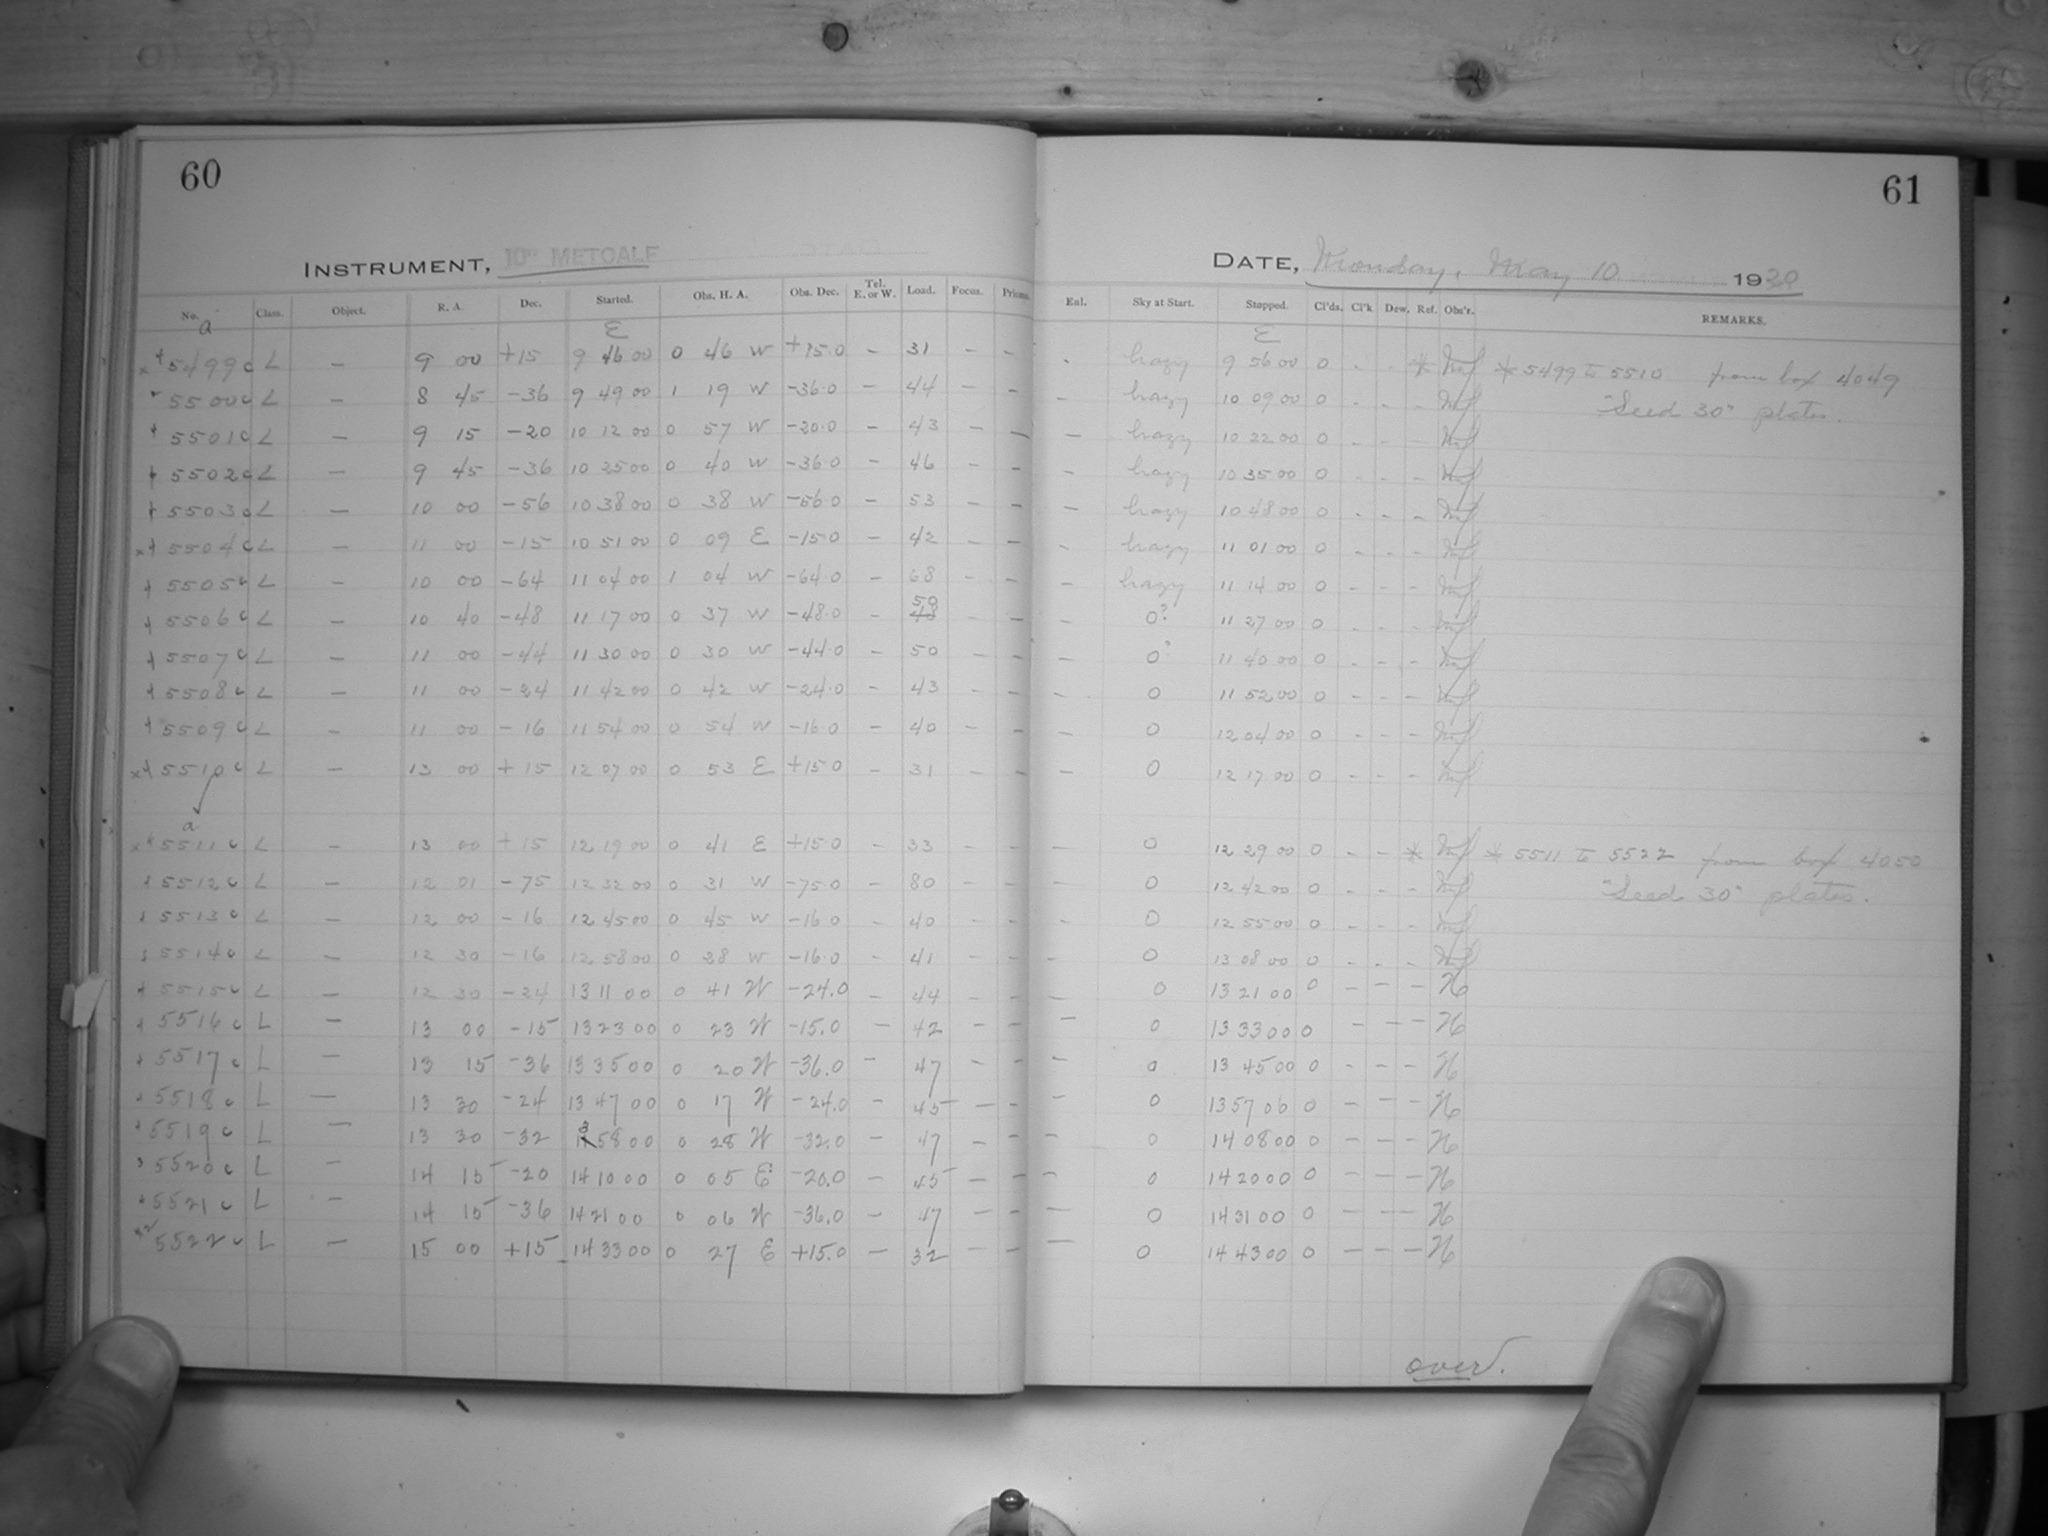 60
INSTRUMENT, 10" METCALF
No. Class. Object. R. A. Dec. Started. Obs. H. A. Obs. Dec. Tel. E. or W. Load. Focus. Prisms.
a E
5499c L — 9 00 +15 9 46 00 0 46 W +15.0 — 31 — —
5500c L — 8 45 -36 9 49 00 1 19 W -36.0 — 44 — —
5501c L — 9 15 -20 10 12 00 0 57 W -20.0 — 43 — —
5502c L — 9 45 -36 10 25 00 0 40 W -36.0 — 46 — —
5503c L — 10 00 -56 10 38 00 0 38 W -56.0 — 53 — —
5504c L — 11 00 -15 10 51 00 0 09 E -15.0 — 42 — —
5505c L — 10 00 -64 11 04 00 1 04 W -64.0 — 68 — —
5506c L — 10 40 -48 11 17 00 0 37 W -48.0 — 50 — —
5507c L — 11 00 -44 11 30 00 0 30 W -44.0 — 50 — —
5508c L — 11 00 -24 11 42 00 0 42 W -24.0 — 43 — —
5509c L — 11 00 -16 11 54 00 0 54 W -16.0 — 40 — —
5510c L — 13 00 +15 12 07 00 0 53 E +15.0 — 31 — —
a
5511c L — 13 00 +15 12 19 00 0 41 E +15.0 — 33 — —
5512c L — 12 01 -75 12 32 00 0 31 W -75.0 — 80 — —
5513c L — 12 00 -16 12 45 00 0 45 W -16.0 — 40 — —
5514c L — 12 30 -16 12 58 00 0 28 W -16.0 — 41 — —
5515c L — 12 30 -24 13 11 00 0 41 W -24.0 — 44 — —
5516c L — 13 00 -15 13 23 00 0 23 W -15.0 — 42 — —
5517c L — 13 15 -36 13 35 00 0 20 W -36.0 — 47 — —
5518c L — 13 30 -24 13 47 00 0 17 W -24.0 — 45 — —
5519c L — 13 30 -32 13 58 00 0 28 W -32.0 — 47 — —
5520c L — 14 15 -20 14 10 00 0 05 E -20.0 — 45 — —
5521c L — 14 15 -36 14 21 00 0 06 W -36.0 — 47 — —
5522c L — 15 00 +15 14 33 00 0 27 E +15.0 — 32 — —
61
DATE, Monday, May 10 1920
Enl. Sky at Start. Stopped. Cl'ds. Cl'k Dew. Ref. Obs'r. REMARKS.
E
- hazy 9 56 00 0 - - * * 5499 to 5510 from box 4049
— hazy 10 09 00 0 - - - "Seed 30" plates.
— hazy 10 22 00 0 - - -
- hazy 10 35 00 0 - - -
— hazy 10 48 00 0 - - -
- hazy 11 01 00 0 - - -
— hazy 11 14 00 0 - - -
— 0? 11 27 00 0 - - -
— 0? 11 40 00 0 - - -
- 0 11 52 00 0 - - -
— 0 12 04 00 0 - - -
— 0 12 17 00 0 - - -
— 0 12 29 00 0 - - * * 5511 to 5522 from box 4050
— 0 12 42 00 0 - - - "Seed 30" plates.
— 0 12 55 00 0 - - -
— 0 13 08 00 0 - - -
— 0 13 21 00 0 — — — N
— 0 13 33 00 0 — — — N
— 0 13 45 00 0 — — — N
— 0 13 57 00 0 — — — N
— 0 14 08 00 0 — — — N
— 0 14 20 00 0 — — — N
— 0 14 31 00 0 — — — N
— 0 14 43 00 0 — — — N
over.